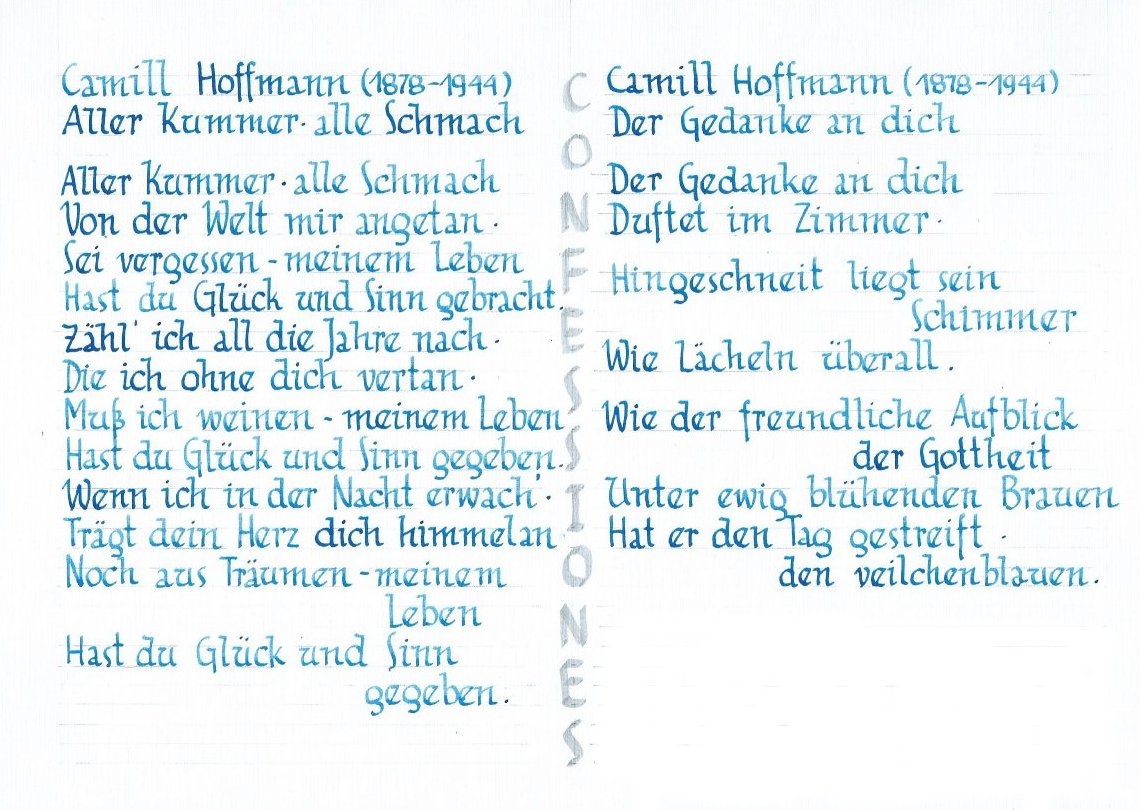 Camill Hoffmann (1878-1944)
Aller Kummer · alle Schmach
Aller Kummer · alle Schmach
Von der Welt mir angetan ·
Sei vergessen - meinem Leben
Hast du Glück und Sinn gebracht.
Zähl' ich all die Jahre nach ·
Die ich ohne dich vertan ·
Muß ich weinen - meinem Leben
Hast du Glück und Sinn gegeben.
Wenn ich in der Nacht erwach' ·
Trägt dein Herz dich himmelan
Noch aus Träumen - meinem
Leben
Hast du Glück und Sinn
gegeben.
CONFESSIONES
Camill Hoffmann (1878-1944)
Der Gedanke an dich
Der Gedanke an dich
Duftet im Zimmer ·
Hingeschneit liegt sein
Schimmer
Wie Lächeln überall.
Wie der freundliche Aufblick
der Gottheit
Unter ewig blühenden Brauen
Hat er den Tag gestreift ·
den veilchenblauen.